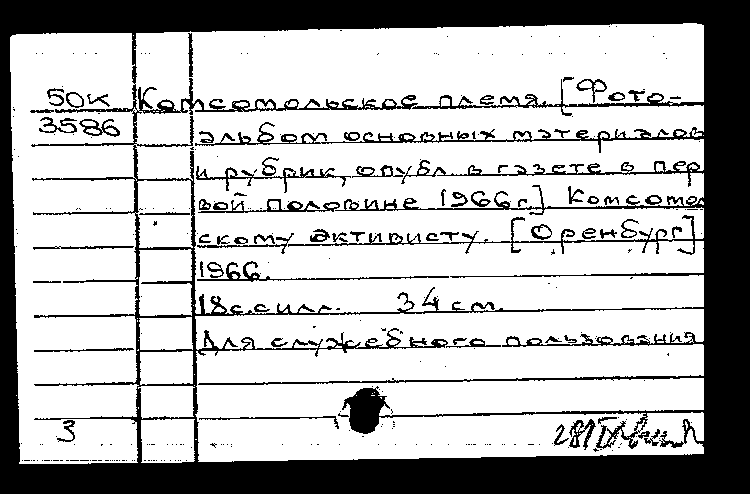 50К Комсомольское племя. [Фото-
3586 альбом основных материалов
и рубрик, опубл. в газете в пер
вой половине 1966г.]. Комсомол
скому активисту. [Оренбург]
1966.
18с.с илл. 34 см.
Для служебного пользования
3